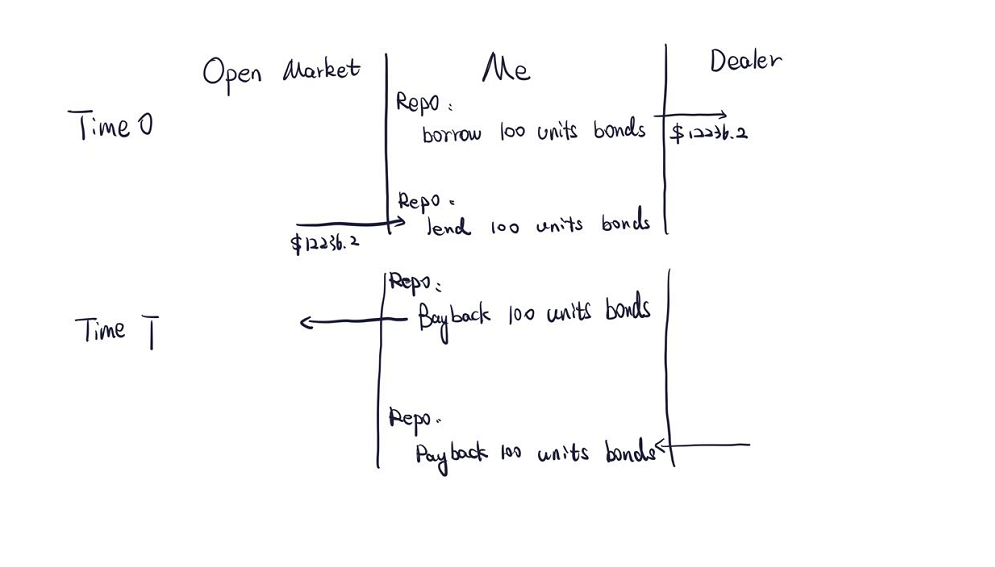 Open Market Me Dealer
Time 0
Repo:
borrow 100 units bonds
$12236.2
Repo.
lend 100 units bonds
$12236.2
Time T
Repo:
Bayback 100 units bonds
Repo.
Payback 100 units bonds